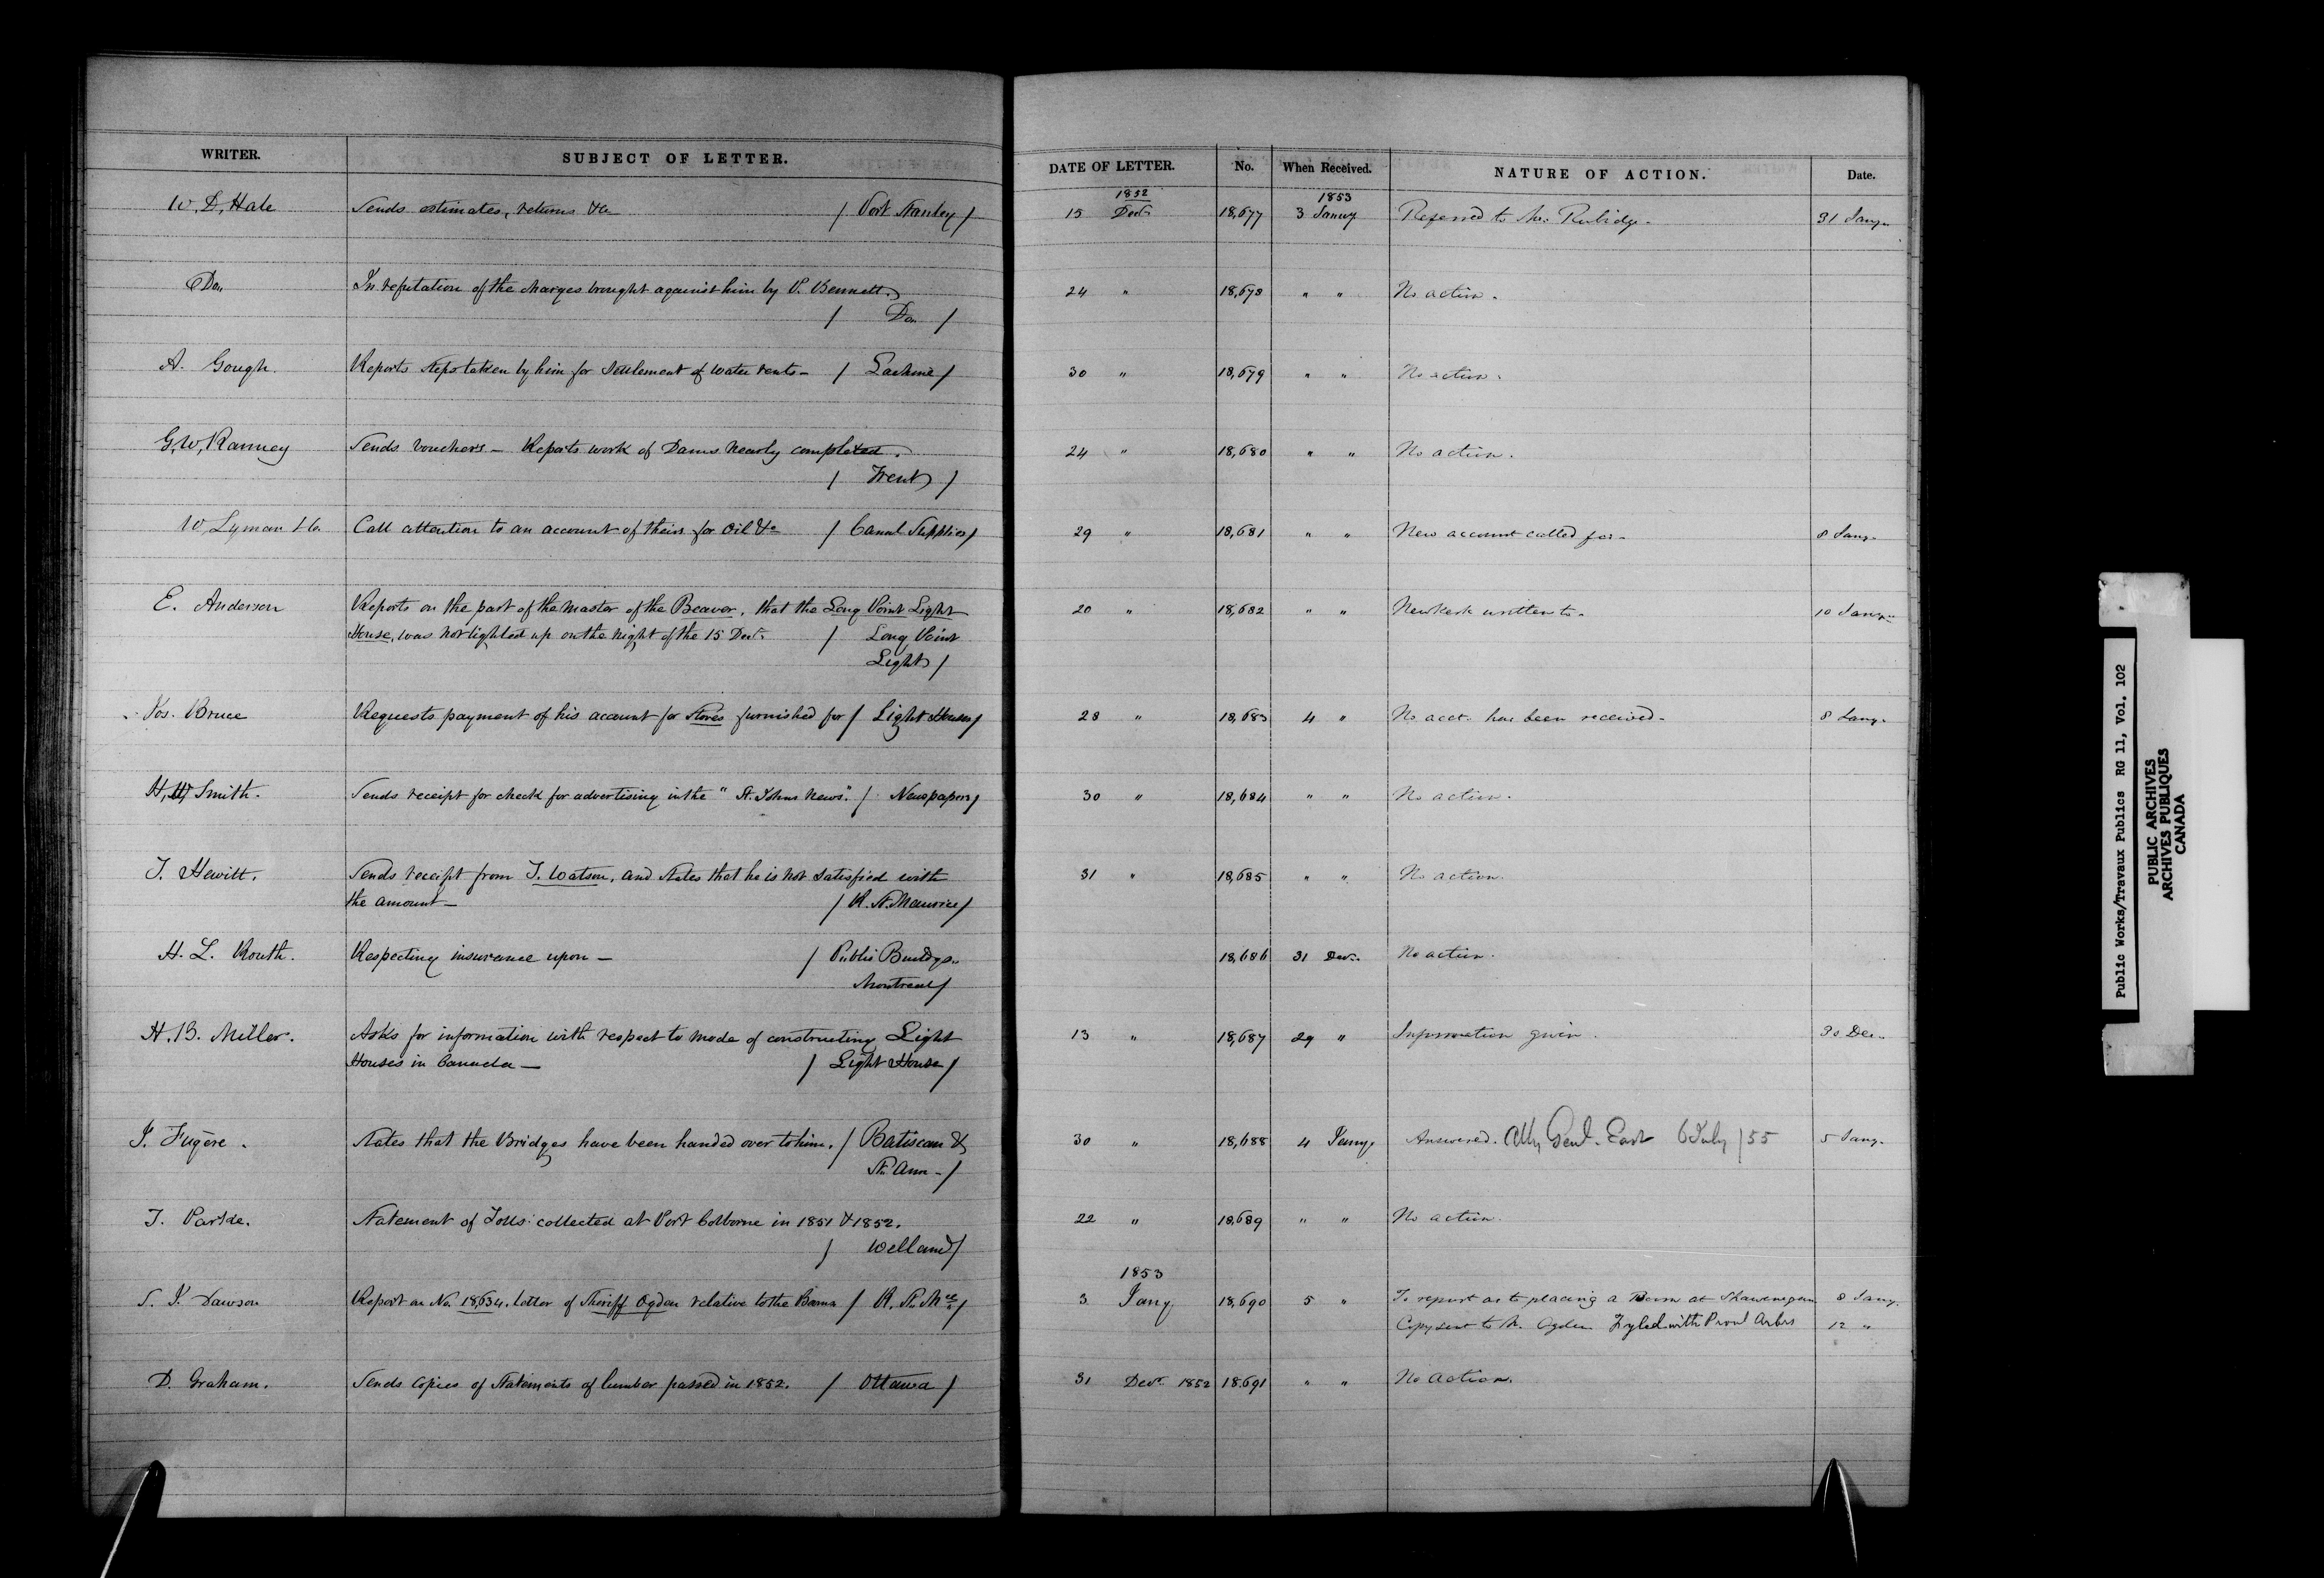 WRITER. SUBJECT OF LETTER. DATE OF LETTER. No. When Received. NATURE OF ACTION. Date.
1852 1853
W, D, Hale Sends estimates, returns &c / Port Stanley / 15 Decr. 18,677 3 Januy Referred to Mr. Rubidge - 31 Jany.
Do. In refutation of the charges brought against him by P. Bennett. 24 " 18,678 " " No action.
/ Do. /
A. Gough. Reports steps taken by him for settlement of water rents - / Lachine / 30 " 18,679 " " No action.
G, W, Ranney Sends vouchers - Reports work of Dams nearly completed. 24 " 18,680 " " No action.
/ Trent /
W, Lyman & Co. Call attention to an account of theirs for Oil &c / Canal Supplies / 29 " 18,681 " " New account called for - 8 Jany.
E. Anderson Reports on the part of the Master of the Beaver, that the Long Point Light 20 " 18,682 " " Newkerk written to. 10 Jany.
House, was not lighted up on the night of the 15 Decr. / Long Point
Light /
Jos. Bruce Requests payment of his account for Stoves furnished for / Light Houses / 28 " 18,683 4 " No acct. has been received. 8 Jany.
H, W, Smith. Sends receipt for check for advertising in the " St. Johns News". / Newspapers / 30 " 18,684 " " No action.
T. Hewitt. Sends receipt from T. Watson, and states that he is not satisfied with 31 " 18,685 " " No action.
the amount - / R. St. Maurice /
H. L. Routh. Respecting insurance upon - / Public Buildgs. 18,686 31 Decr. No action.
Montreal /
H. B. Miller. Asks for information with respect to mode of constructing Light 13 " 18,687 29 " Information given. 30 Dec.
Houses in Canada - / Light House /
J. Fugère. States that the Bridges have been handed over to him. / Batiscan & 30 " 18,688 4 Jany. Answered. Atty Genl. East 6 July / 55 5 Jany.
St. Ann - /
T. Parke. Statement of Tolls collected at Port Colborne in 1851 & 1852. 22 " 18,689 " " No action.
/ Welland /
1853
S. J. Dawson Report on No. 18,634. letter of Sheriff Ogden relative to the Booms / R. St. Mce / 3 Jany 18,690 5 " To report as to placing a Boom at Shawenegan 8 Jany.
Copy sent to Mr. Ogden Fyled with Provl Arbrs 12 "
D. Graham. Sends copies of Statements of lumber passed in 1852. / Ottawa / 31 Decr. 1852 18.691 " " No action.
Public Works/Travaux Publics RG 11, Vol. 102
PUBLIC ARCHIVES
ARCHIVES PUBLIQUES
CANADA